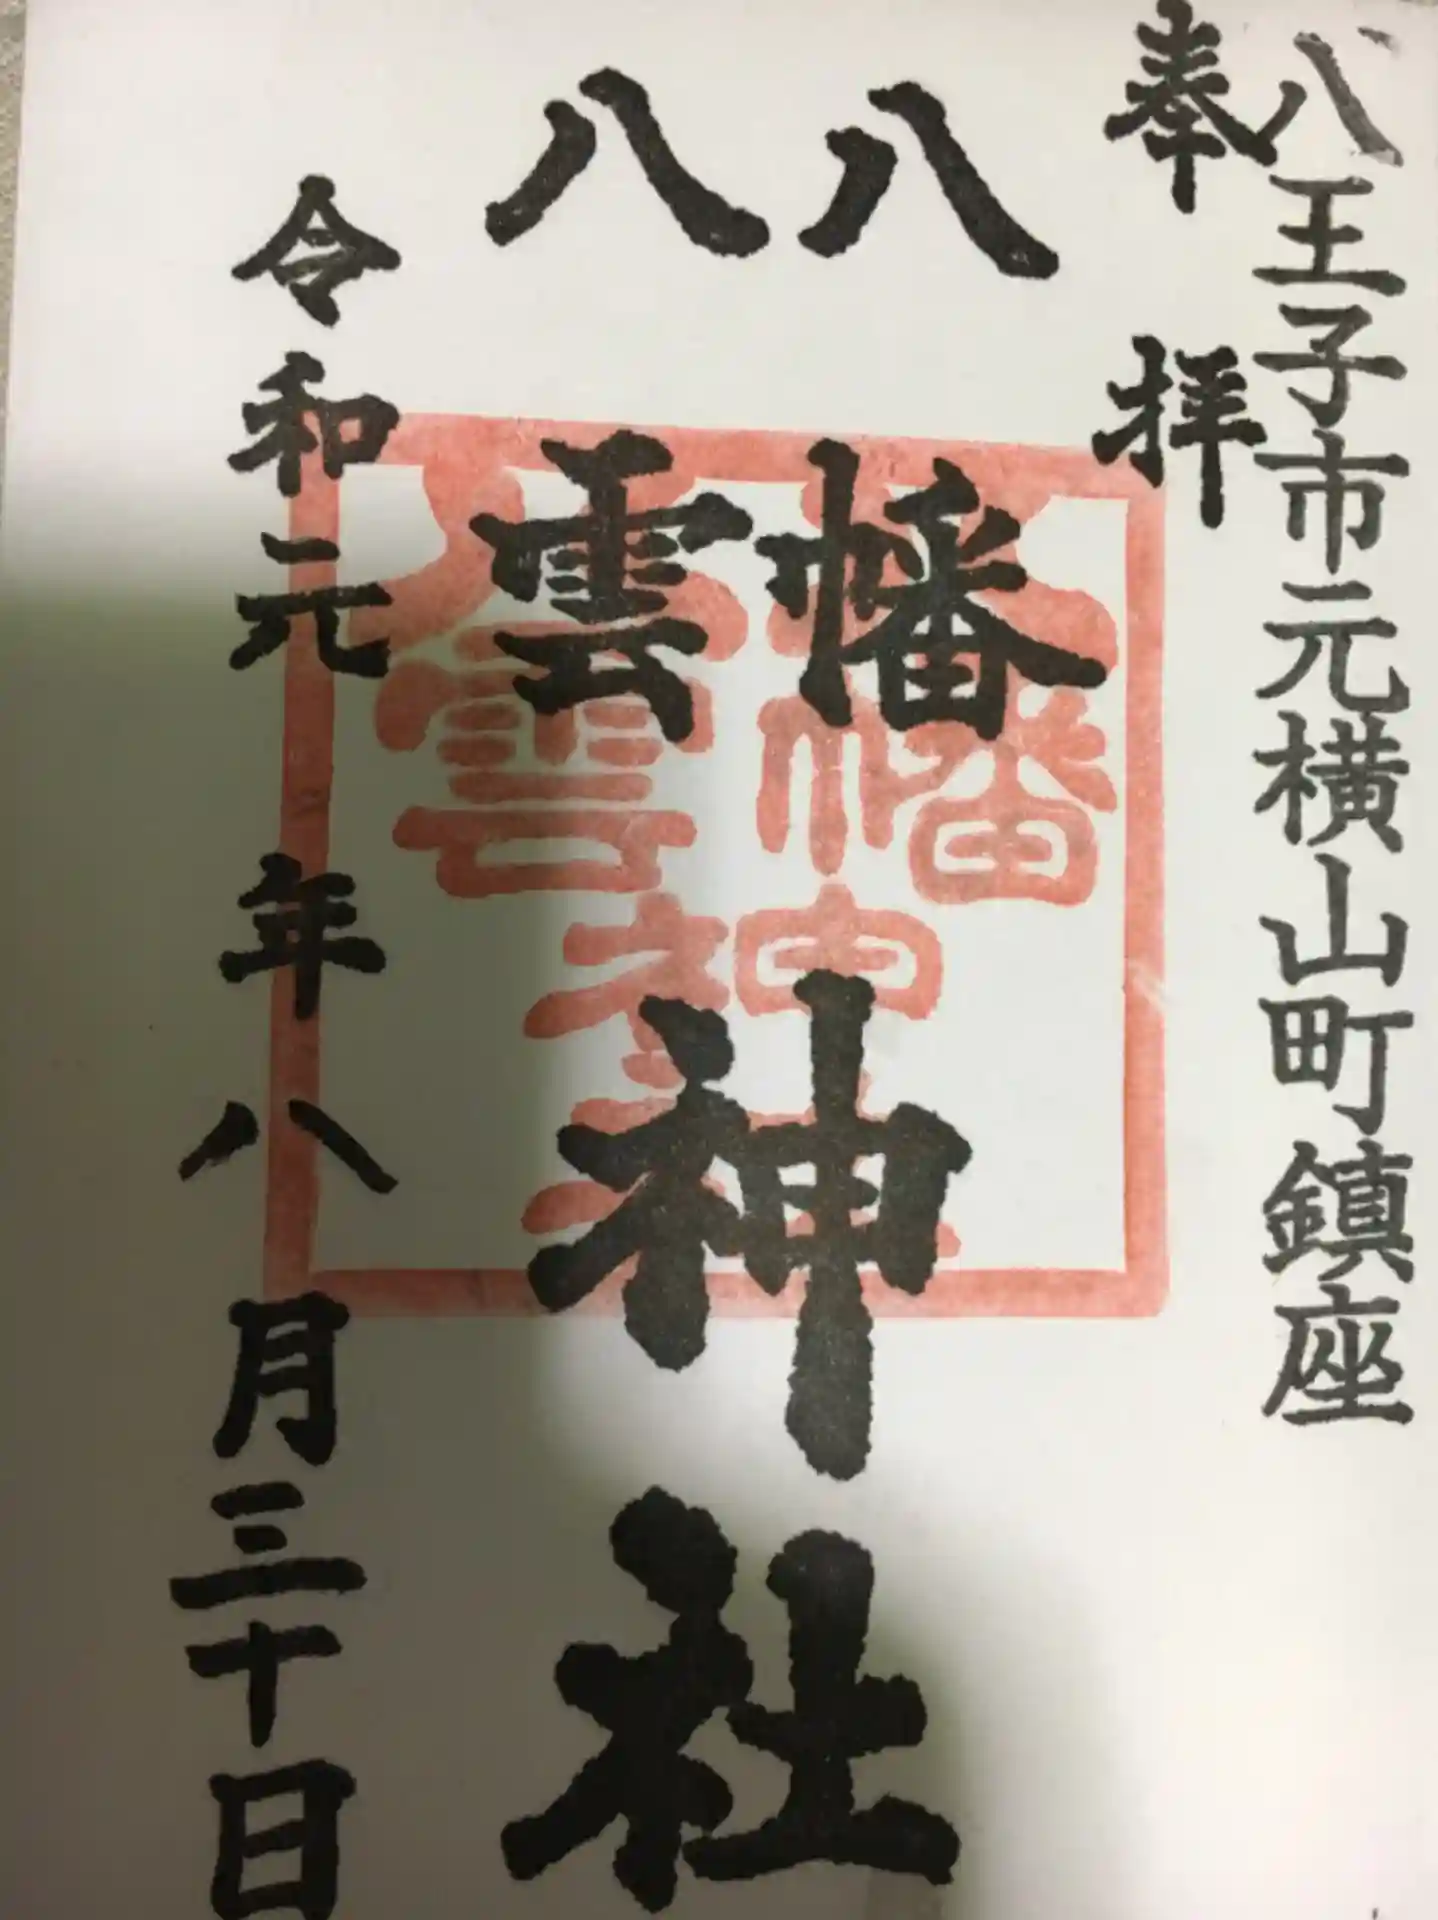 八王子市元横山町鎮座
奉拝
八幡
八雲
神社
令和元年八月三十日
八幡神
八雲社